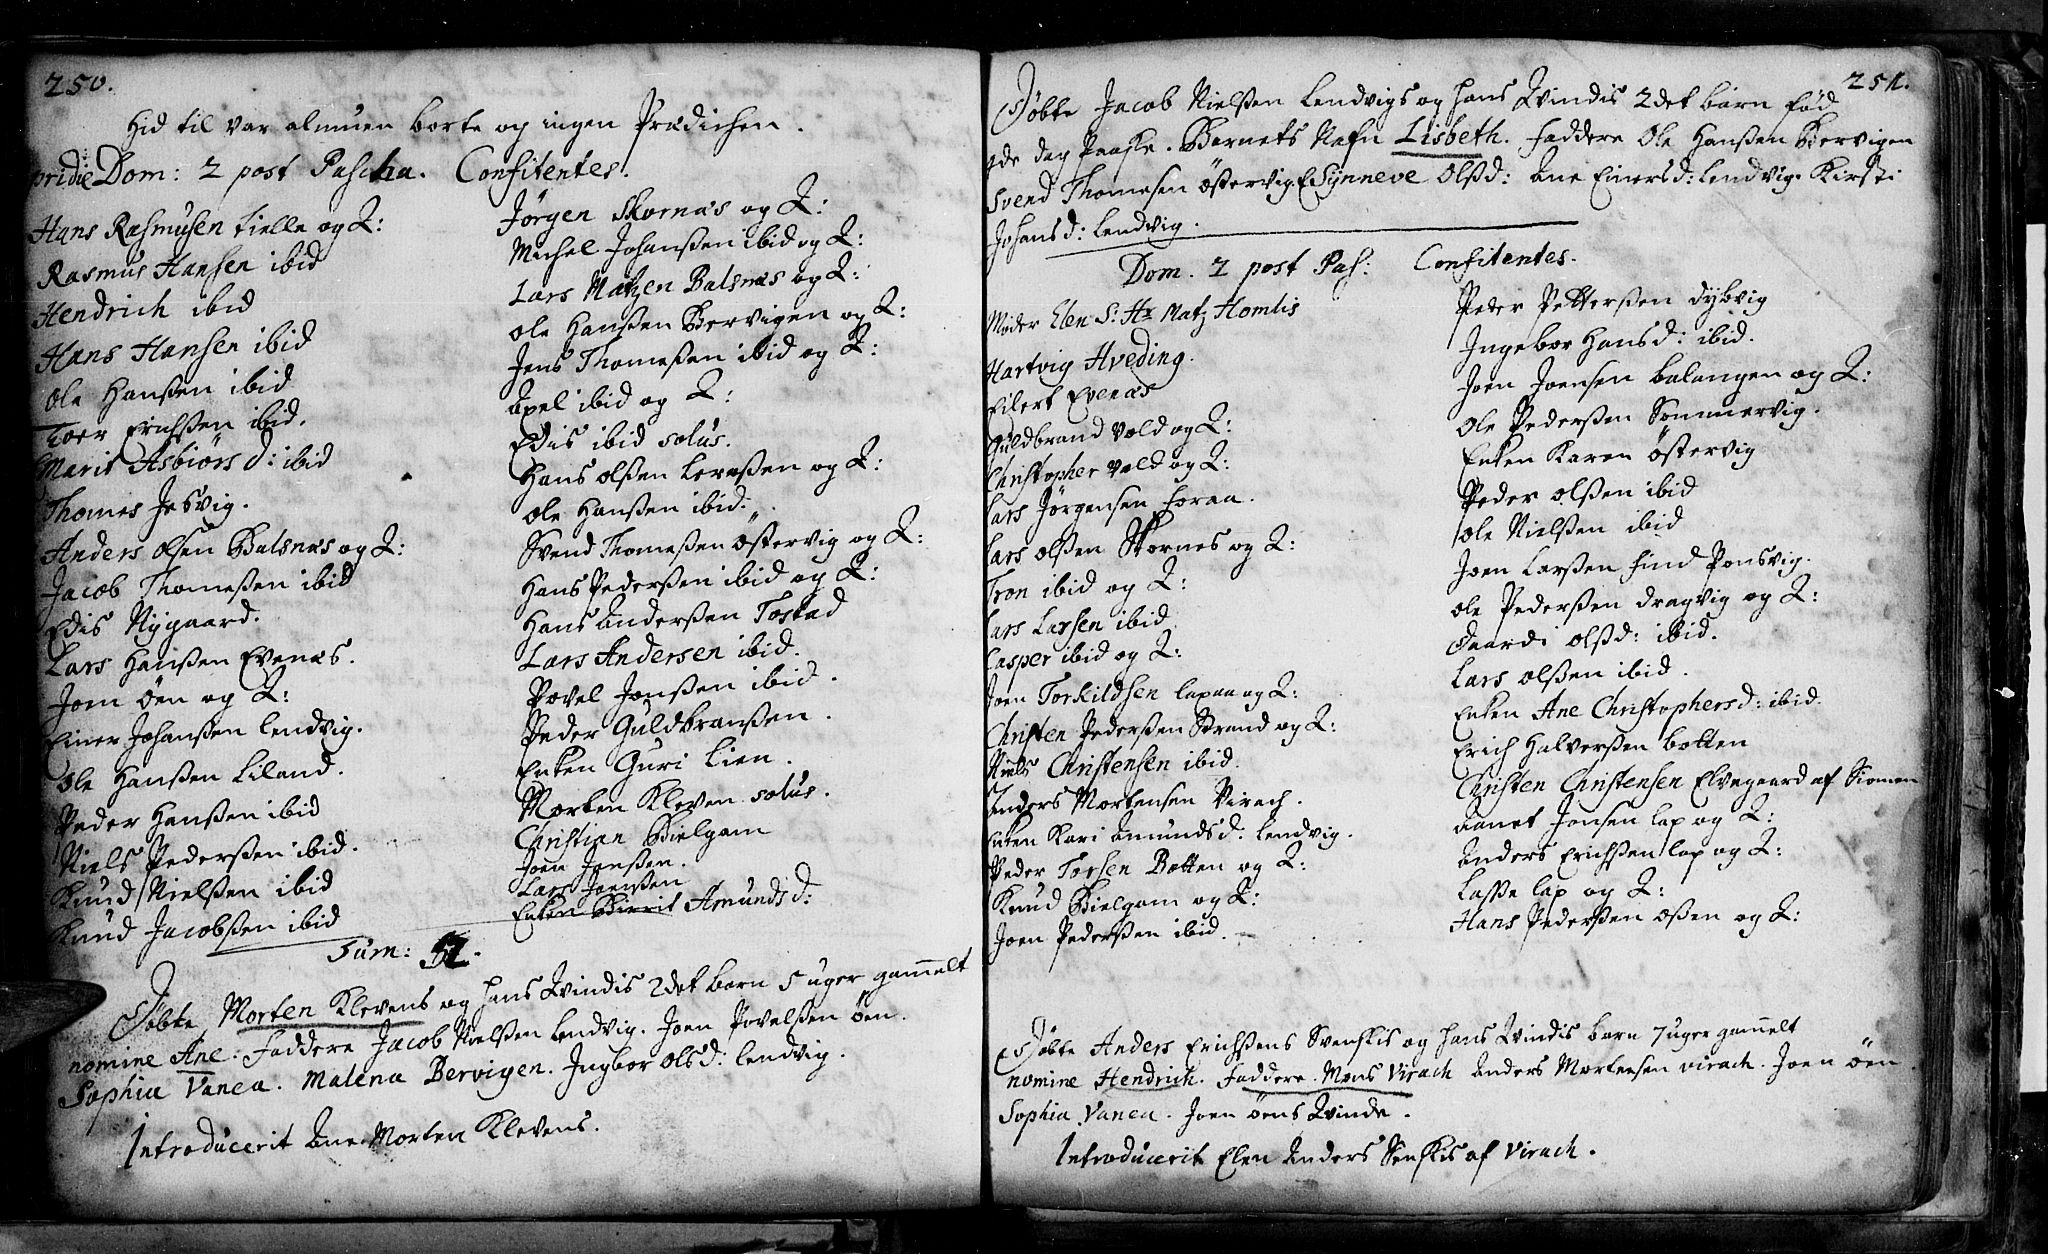 250.
Hid til var almuen borte og ingen Prædichen.
pridie Dom: 2 post Pascha. Confitentes.
Hans Rasmusen Tielle og Q:
Rasmus Hansen ibid
Hendrich ibid
Hans Hansen ibid
Ole Hanßen ibid
Toer Erichßen ibid.
Marit Asbiørs d: ibid
Thomes Jesvig.
Anders Olsen Balsnæs og Q:
Jacob Thomeßen ibid
Edis Nygaard.
Lars Hanßen Evenæs.
Joen öen og Q:
Einer Johanßen Lendvig.
Ole Hanßen Liland.
Peder Hanßen ibid
Niels Pederßen ibid.
Knud Nielßen ibid
Knud Jacobßen ibid
Jörgen Skornæs og Q:
Michel Johanßen ibid og Q:
Lars Matzen Balsnæs og Q:
Ole Hanßen Bervigen og Q:
Jens Thomeßen ibid og Q:
Axel ibid og Q:
Edis ibid solus.
Hans Olßen Leraßen og Q:
Ole Hanßen ibid.
Svend Thomeßen östervig og Q:
Hans Pederßen ibid og Q:
Hans Anderßen Tostad
Lars Andersen ibid.
Povel Jonßen ibid.
Peder Guldbranßen.
Enken Guri Lien.
Morten Kleven solus.
Christian Bielgam
Joen Jonßen.
Lars Joenßen
Enken Bierit Amunds d:
Sum: 52.
Döbte Morten Klevens og hans Qvindis 2det barn 5 uger gammelt
nomine Ane. Faddere Jacob Nielßen Lendvig. Joen Povelßen öen.
Sophia Vanea. Malena Bervigen. Ingbor Olsd: Lendvig.
Introducerit Ane Morten Klevens.
251.
Döbte Jacob Nielßen Lendvigs og hans Qvindis 2det barn född
4de dag Paaske. Barnets Nafn Lisbeth. Faddere Ole Hanßen Bervigen
Svend Thomesen östervig. Synneve Olßd: Ane Einersd: Lendvig. Kirsti
Johans d: Lendvig.
Dom. 2 post Pas: Confitentes.
Moder Elen S: Hr Matz Homlis
Hartvig Hveding.
Eilert Evenæs
Guldbrand Vold og Q:
Christopher Vold og Q:
Lars Jörgensen Foraa.
Lars Olßen Skornes og Q:
Tron ibid og Q:
Lars Larsen ibid
Casper ibid og Q:
Joen Torkildsen Lapaa og Q:
Christen Pederßen Strand og Q:
Niels Christensen ibid.
Anders Mortensen Virach.
Enken Kari Amunds d. Lendvig.
Peder Torsen Botten og Q:
Knud Bielgam og Q:
Joen Pederßen ibid.
Peder Petterßen Dybvig
Ingebor Hans d: ibid.
Joen Joensen Balangen og Q:
Ole Pederßen Sommervig.
Enken Karen Östervig
Peder Olßen ibid
Ole Nielßen ibid
Joen Larßen Find Ponsvig.
Ole Pederßen Dragvig og Q:
Baardi Olßd: ibid.
Lars Olßen ibid.
Enken Ane Christophers d: ibid.
Erich Halverßen Botten
Christen Christensen Elvegaard af Siomen
Aanet Jonsen Lap og Q:
Anders Erichßen Lap og Q:
Laße Lap og Q:
Hans Pederßen Oßen og Q:
Döbte Anders Erichßens Svenskis og hans Qvindis barn 7 uger gammelt
nomine Hendrich. Faddere. Mons Virach Anders Mortensen Virach. Joen öen.
Sophia Vanea. Joen öens Qvinde.
Introducerit Elen Anders Senskis af Virach.